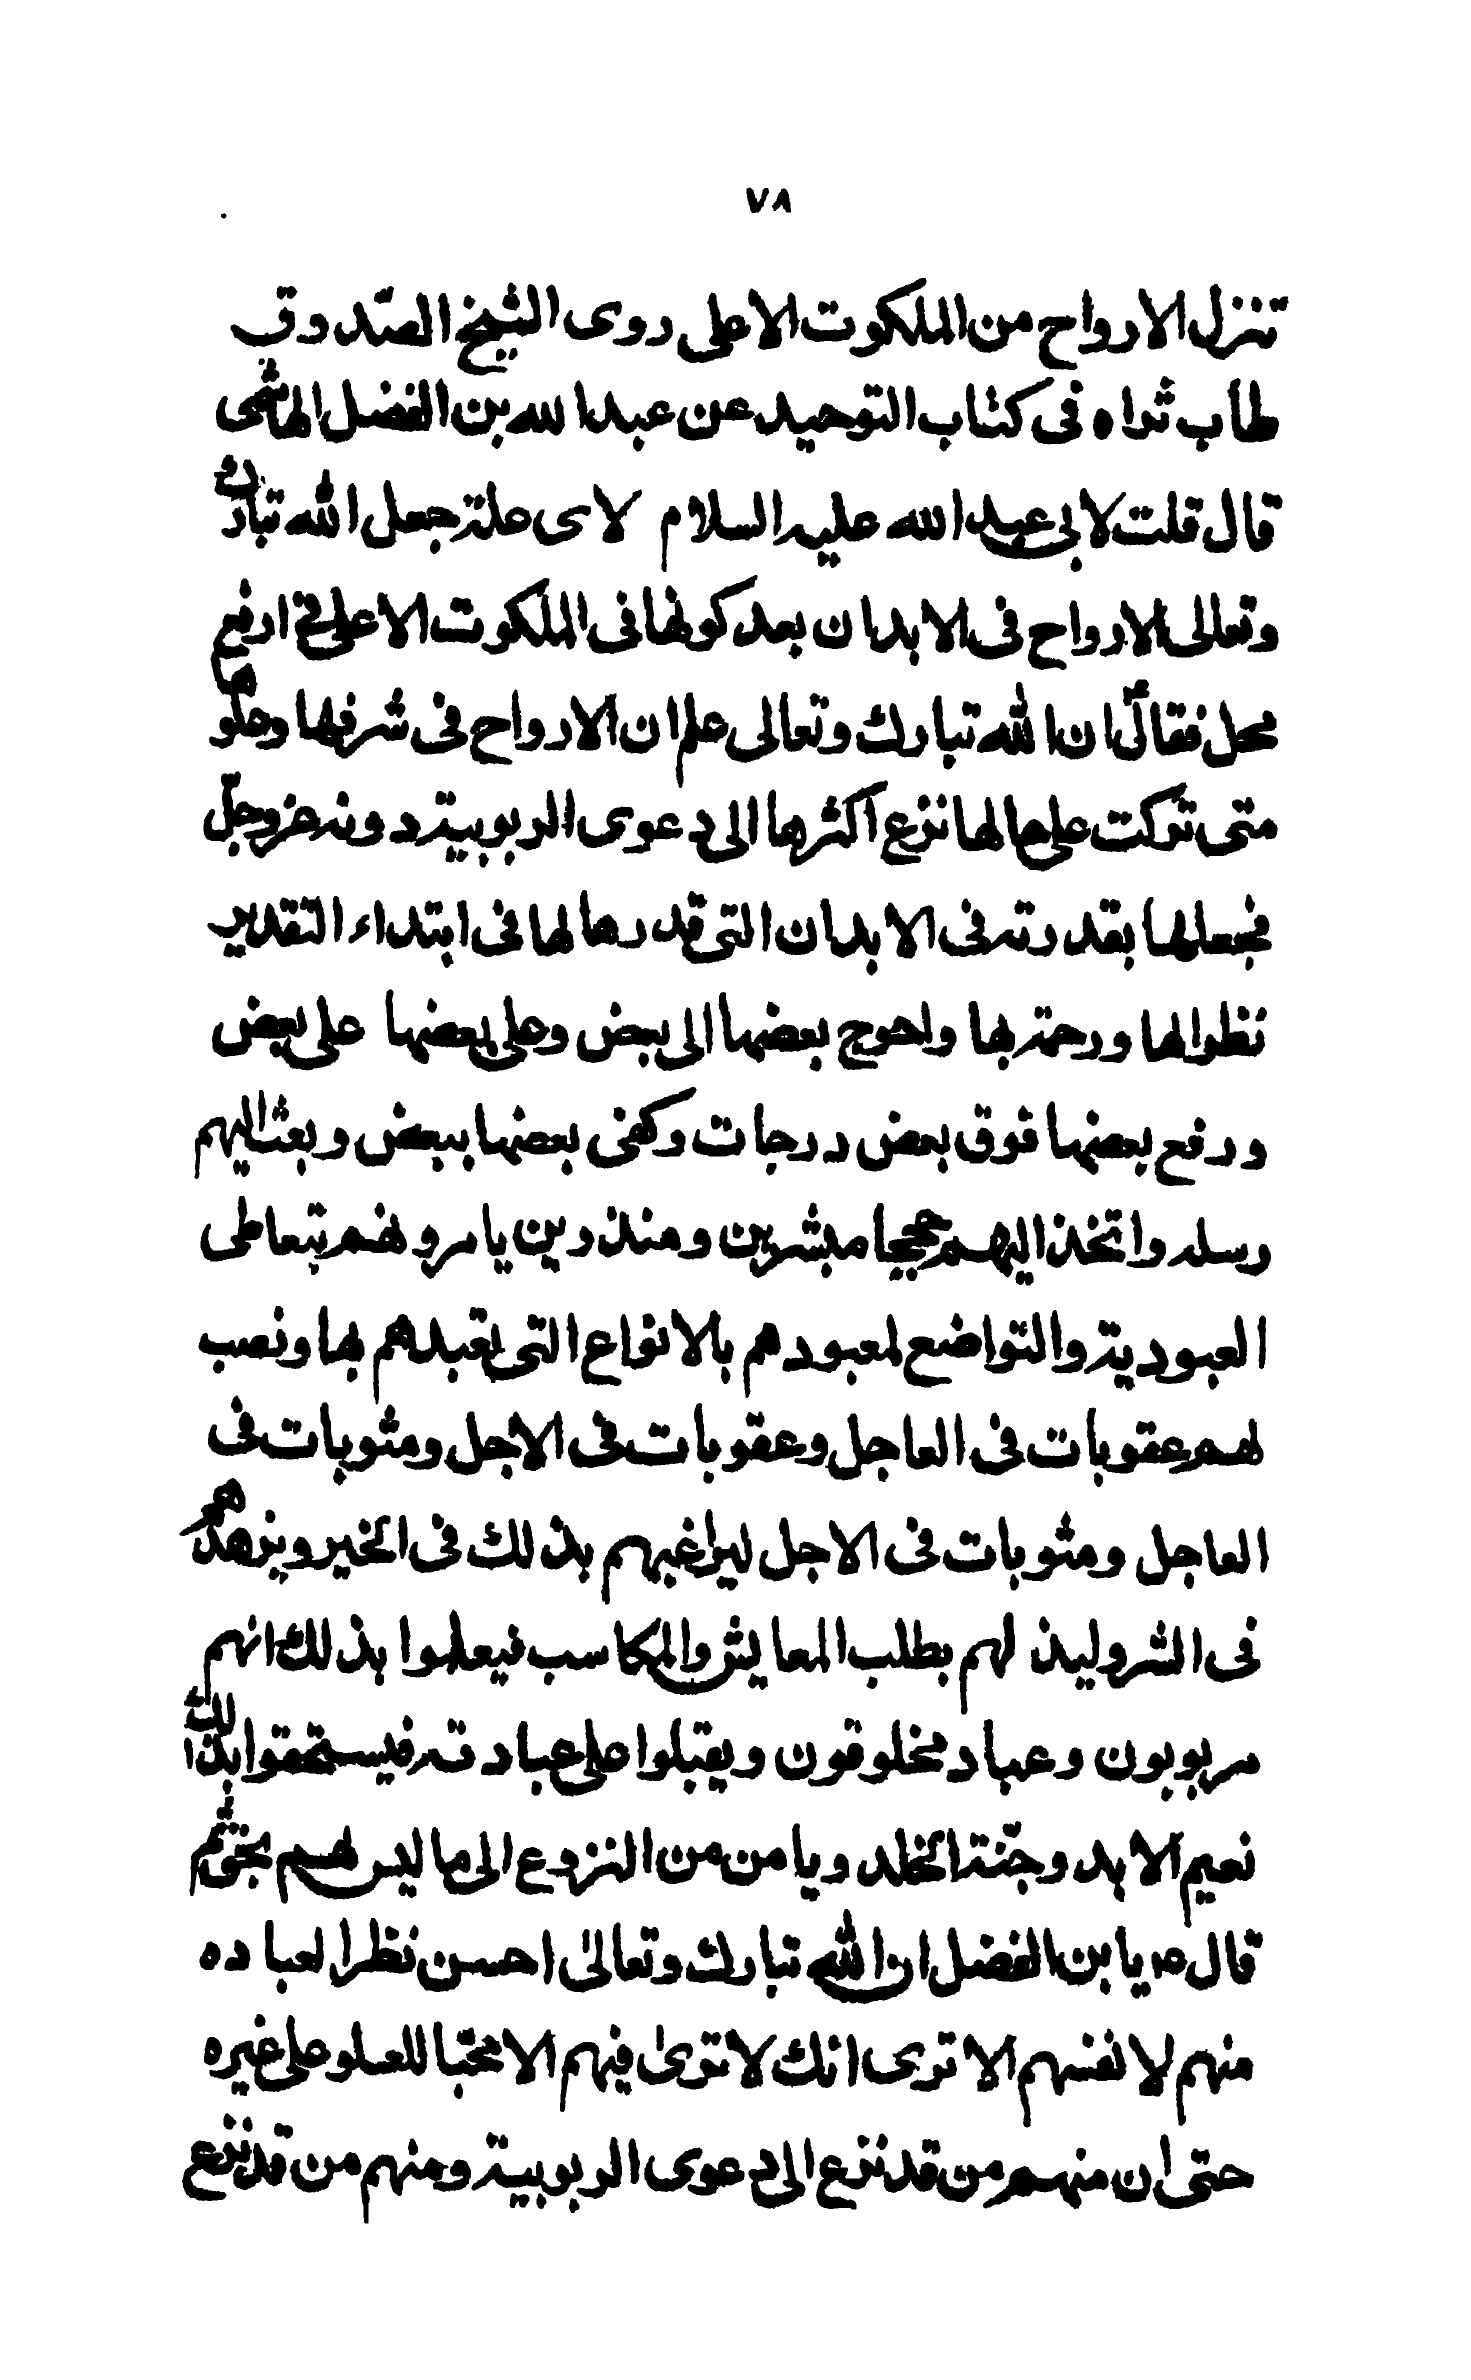 ٧٨
تنزل الارواح من الملكوت الاعلى روى الشيخ الصّدوق
طاب ثراه فى كتاب التوحيد عن عبد الله بن الفضل الهاشمى
قال قلت لابى عبد الله عليه السلام لاى علة جعل الله تبارك
وتعالى الارواح فى الابدان بعد كونها فى الملكوت الاعلى فى ارفع
محل فقال ان الله تبارك وتعالى علم ان الارواح فى شرفها وعلوها
متى تركت على حالها نزع اكثرها الى دعوى الربوبية دونه عز وجلّ
فجعلها بقدرته فى الابدان التى قدرها لها فى ابتداء التقدير
نظرا لها ورحمة بها واحوج بعضها الى بعض وعلى بعضها على بعض
ورفع بعضها فوق بعض درجات وكفى بعضها ببعض وبعث اليهم
رسله واتخذ اليهم حججا مبشرين ومنذرين يامرونهم بتعاطى
العبودية والتواضع لمعبودهم بالانواع التى تعبدهم بها ونصب
لهم عقوبات فى العاجل وعقوبات فى الاجل ومثوبات فى
العاجل ومثوبات فى الاجل ليراغبهم بذلك فى الخير ويزهدهم
فى الشر وليذ لهم بطلب المعايش والمكاسب فيعلموا بذلك انهم
مربوبون وعباد مخلوقون ويقبلوا على عبادته فيستحقوا بذالك
نعيم الابد وجنّة الخلد ويامن من النزوع الى ما ليس لهم بحق ثم
قال ص يابن الفضل ان الله تبارك وتعالىٰ احسن نظرا لعباده
منهم لانفسهم الا ترى انك لا ترىٰ فيهم الا محبّا للعلو على غيره
حتى ان منهم من قد نزع الى دعوى الربوبية ومنهم من قد نزع